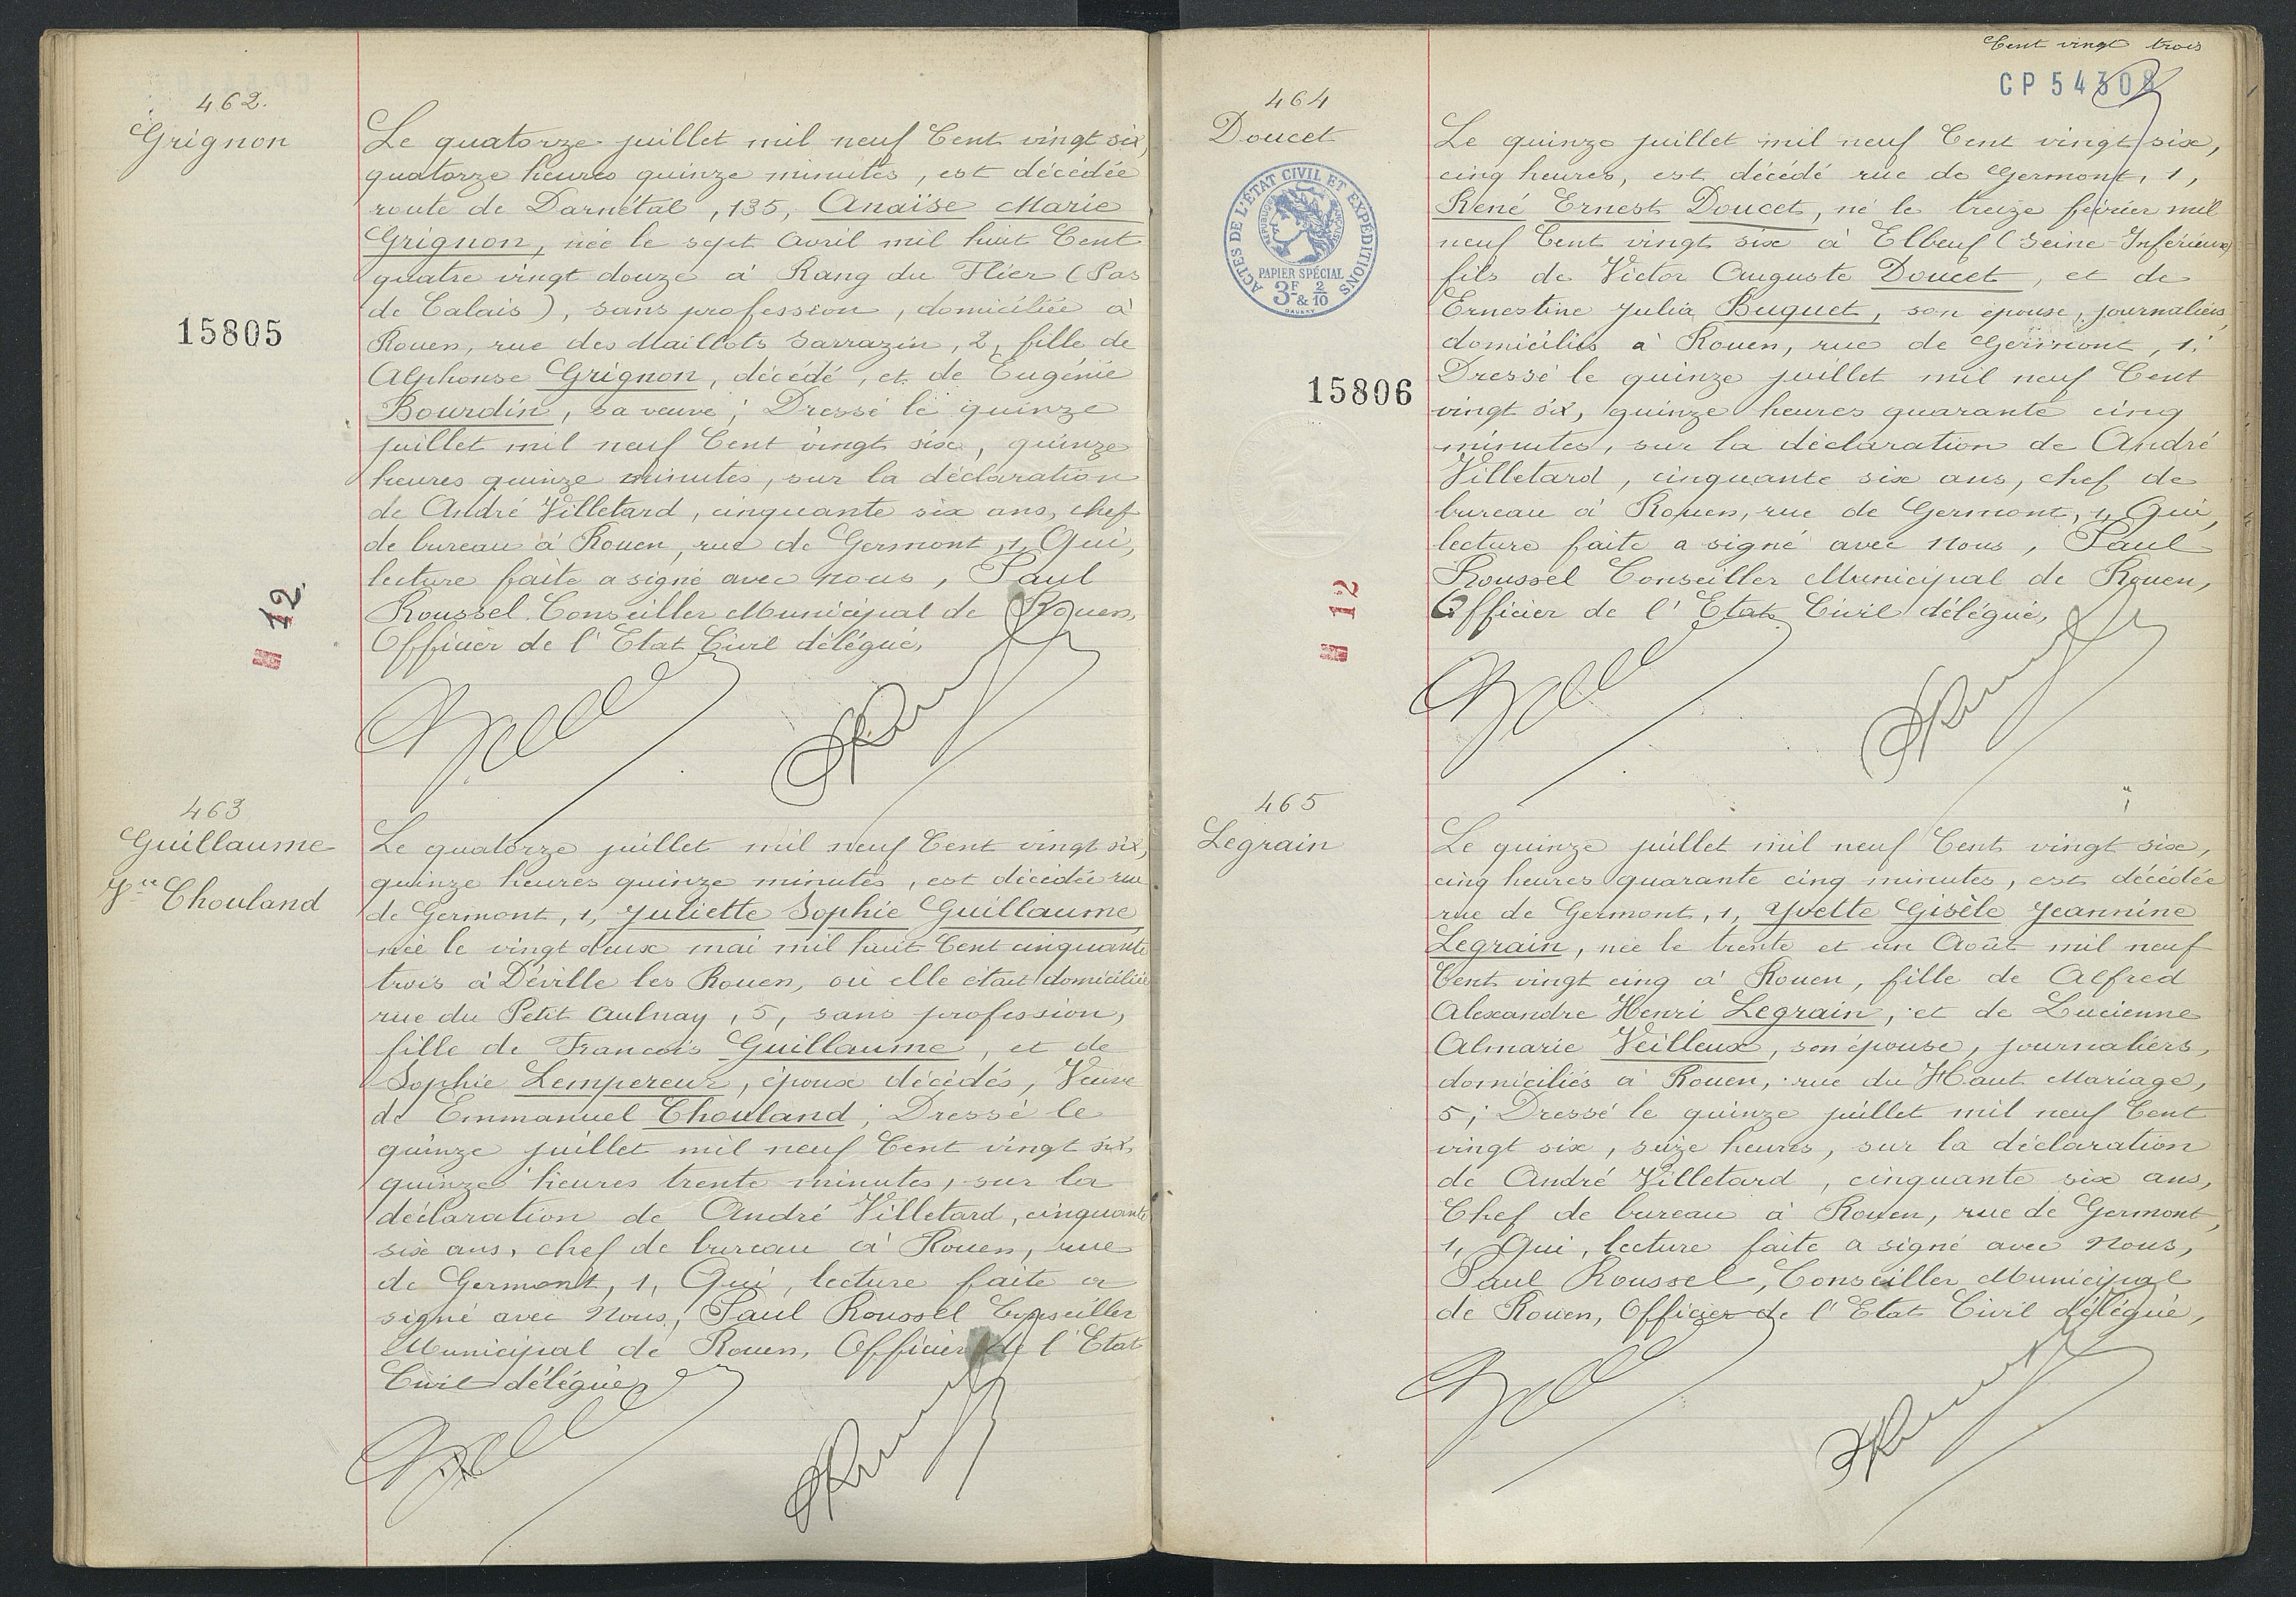 462.
Grignon
Le quatorze juillet mil neuf Cent vingt six,
quatorze heures quinze minutes, est décédée
route de Darnétal, 135, Anaïse Marie
Grignon, née le sept Avril mil huit Cent
quatre vingt douze à Rang du Flier (Pas
de Calais), sans profession, domiciliée à
Rouen, rue des Maillots Sarrazin, 2, fille de
Alphonse Grignon, décédé, et de Eugénie
Bourdin, sa veuve; Dressé le quinze
juillet mil neuf Cent vingt six, quinze
heures quinze minutes, sur la déclaration
de André Villetard, cinquante six ans, chef
de bureau à Rouen, rue de Germont, 1, Qui,
lecture faite a signé avec nous, Paul
Roussel Conseiller Municipal de Rouen,
Officier de l'Etat Civil délégué,
15805
12
463
Guillaume
Vve Chouland
Le quatorze juillet mil neuf Cent vingt six,
quinze heures quinze minutes, est décédée rue
de Germont, 1, Juliette Sophie Guillaume
née le vingt deux mai mil huit Cent cinquante
trois à Déville les Rouen, où elle était domiciliée
rue du Petit Aulnay, 5, sans profession,
fille de Francois Guillaume, et de
Sophie Lempereur, époux décédés, Veuve
de Emmanuel Chouland; Dressé le
quinze juillet mil neuf Cent vingt six,
quinze heures trente minutes, sur la
déclaration de André Villetard, cinquante
six ans, chef de bureau à Rouen, rue
de Germont, 1, Qui, lecture faite a
signé avec Nous, Paul Roussel Conseiller
Municipal de Rouen, Officier de l'Etat
Civil délégué,
Cent vingt trois
CP 54308
464
Doucet
ACTES DE L'ÉTAT CIVIL ET EXPÉDITIONS
RÉPUBLIQUE FRANÇAISE
PAPIER SPÉCIAL
3F & 2/10
Le quinze juillet mil neuf Cent vingt six,
cinq heures, est décédé rue de Germont, 1,
René Ernest Doucet, né le treize février mil
neuf Cent vingt six à Elbeuf (Seine-Inférieure)
fils de Victor Auguste Doucet, et de
Ernestine Julia Buquet, son épouse, journaliers,
domiciliés à Rouen, rue de Germont, 1;
Dressé le quinze juillet mil neuf Cent
vingt six, quinze heures quarante cinq
minutes, sur la déclaration de André
Villetard, cinquante six ans, chef de
bureau à Rouen, rue de Germont, 1, Qui,
lecture faite a signé avec Nous, Paul
Roussel Conseiller Municipal de Rouen,
Officier de l'Etat Civil délégué,
15806
12
465
Legrain
Le quinze juillet mil neuf Cent vingt six,
cinq heures quarante cinq minutes, est décédée
rue de Germont, 1, Yvette Gisèle Jeannine
Legrain, née le trente et un Août mil neuf
Cent vingt cinq à Rouen, fille de Alfred
Alexandre Henri Legrain, et de Lucienne
Almarie Veilleux, son épouse, journaliers,
domiciliés à Rouen, rue du Haut Mariage,
5; Dressé le quinze juillet mil neuf Cent
vingt six, seize heures, sur la déclaration
de André Villetard, cinquante six ans,
Chef de bureau à Rouen, rue de Germont,
1, Qui, lecture faite a signé avec Nous,
Paul Roussel, Conseiller Municipal
de Rouen, Officier de l'Etat Civil délégué,